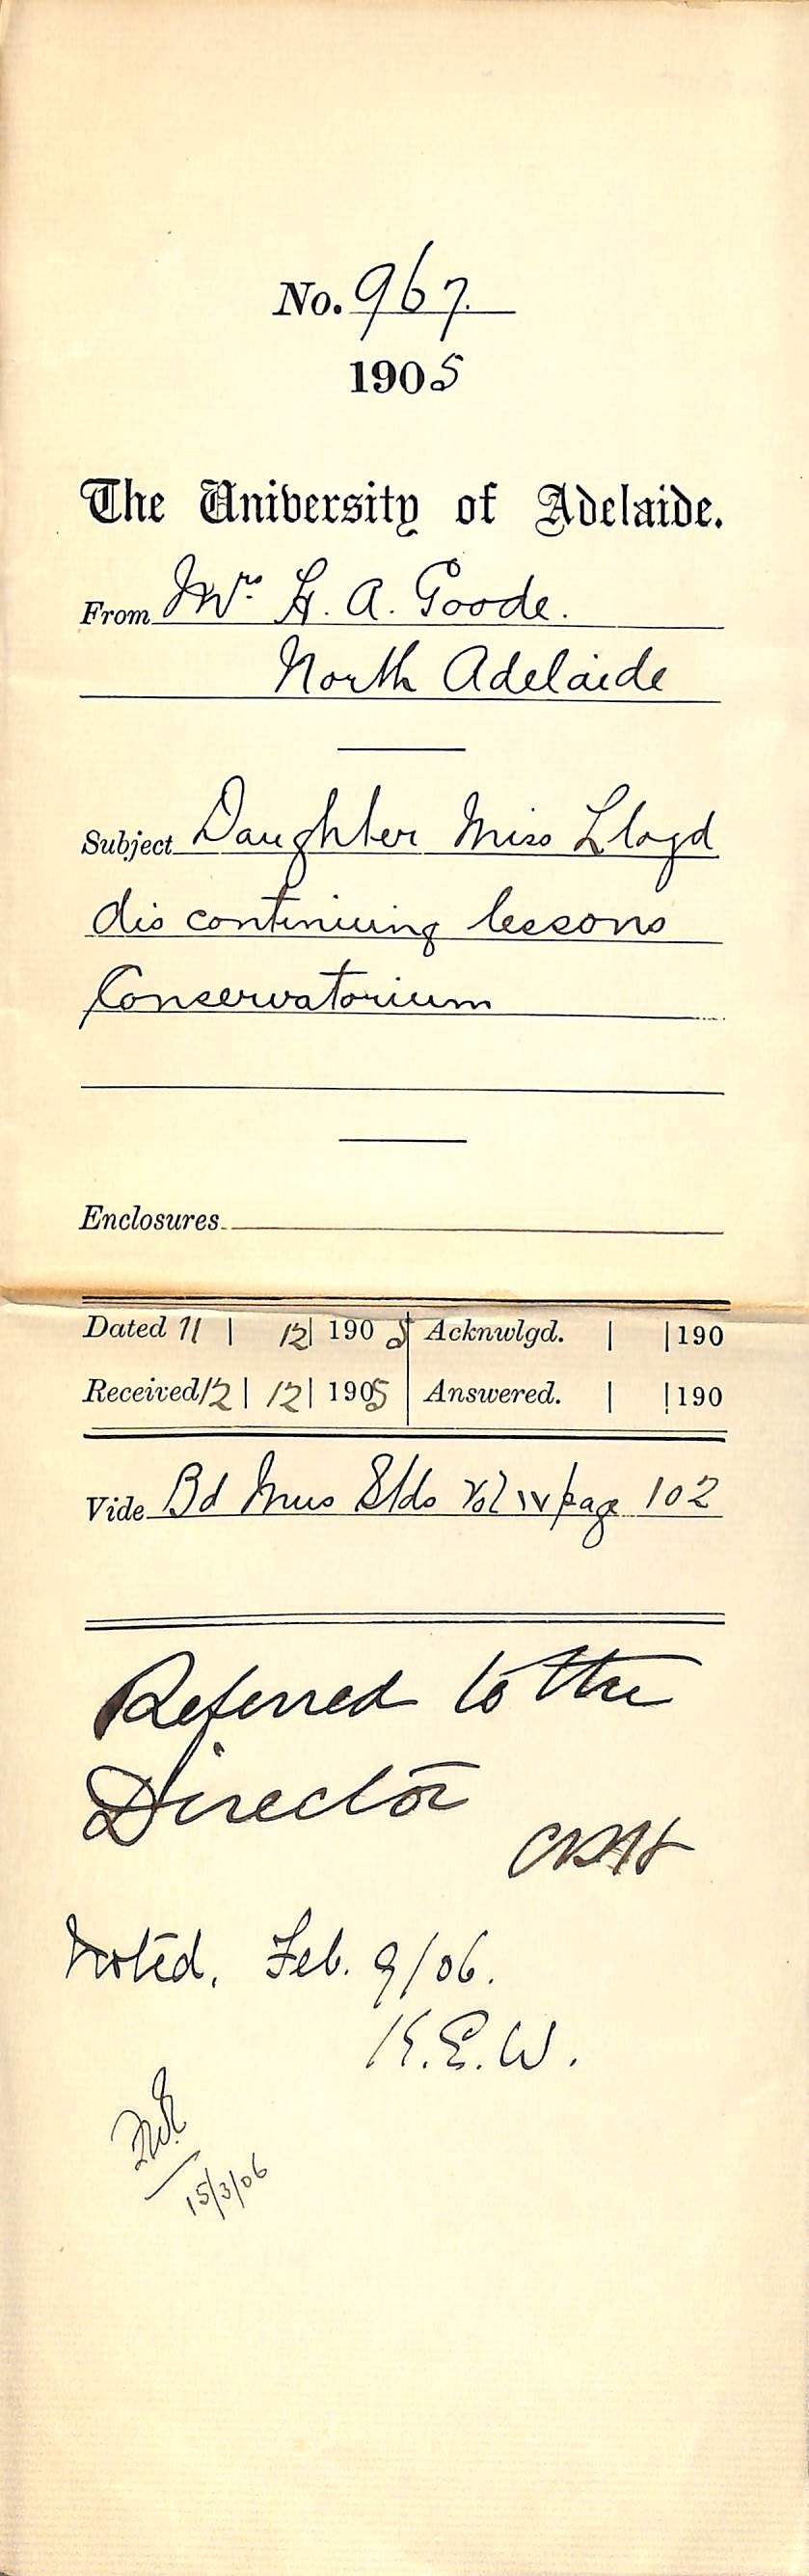 No. 967.
1905
The University of Adelaide.
From Mrs. H. A. Goode.
North Adelaide
Subject Daughter Miss Lloyd
discontinuing lessons
Conservatorium
Enclosures
Dated 11 | 12 | 1905 Acknwlgd. | | 190
Received 12 | 12 | 1905 Answered. | | 190
Vide Bd Mus Stds Vol IV page 102
Referred to the
Director
CRH
Noted, Feb. 9/06.
K.E.W.
15/3/06